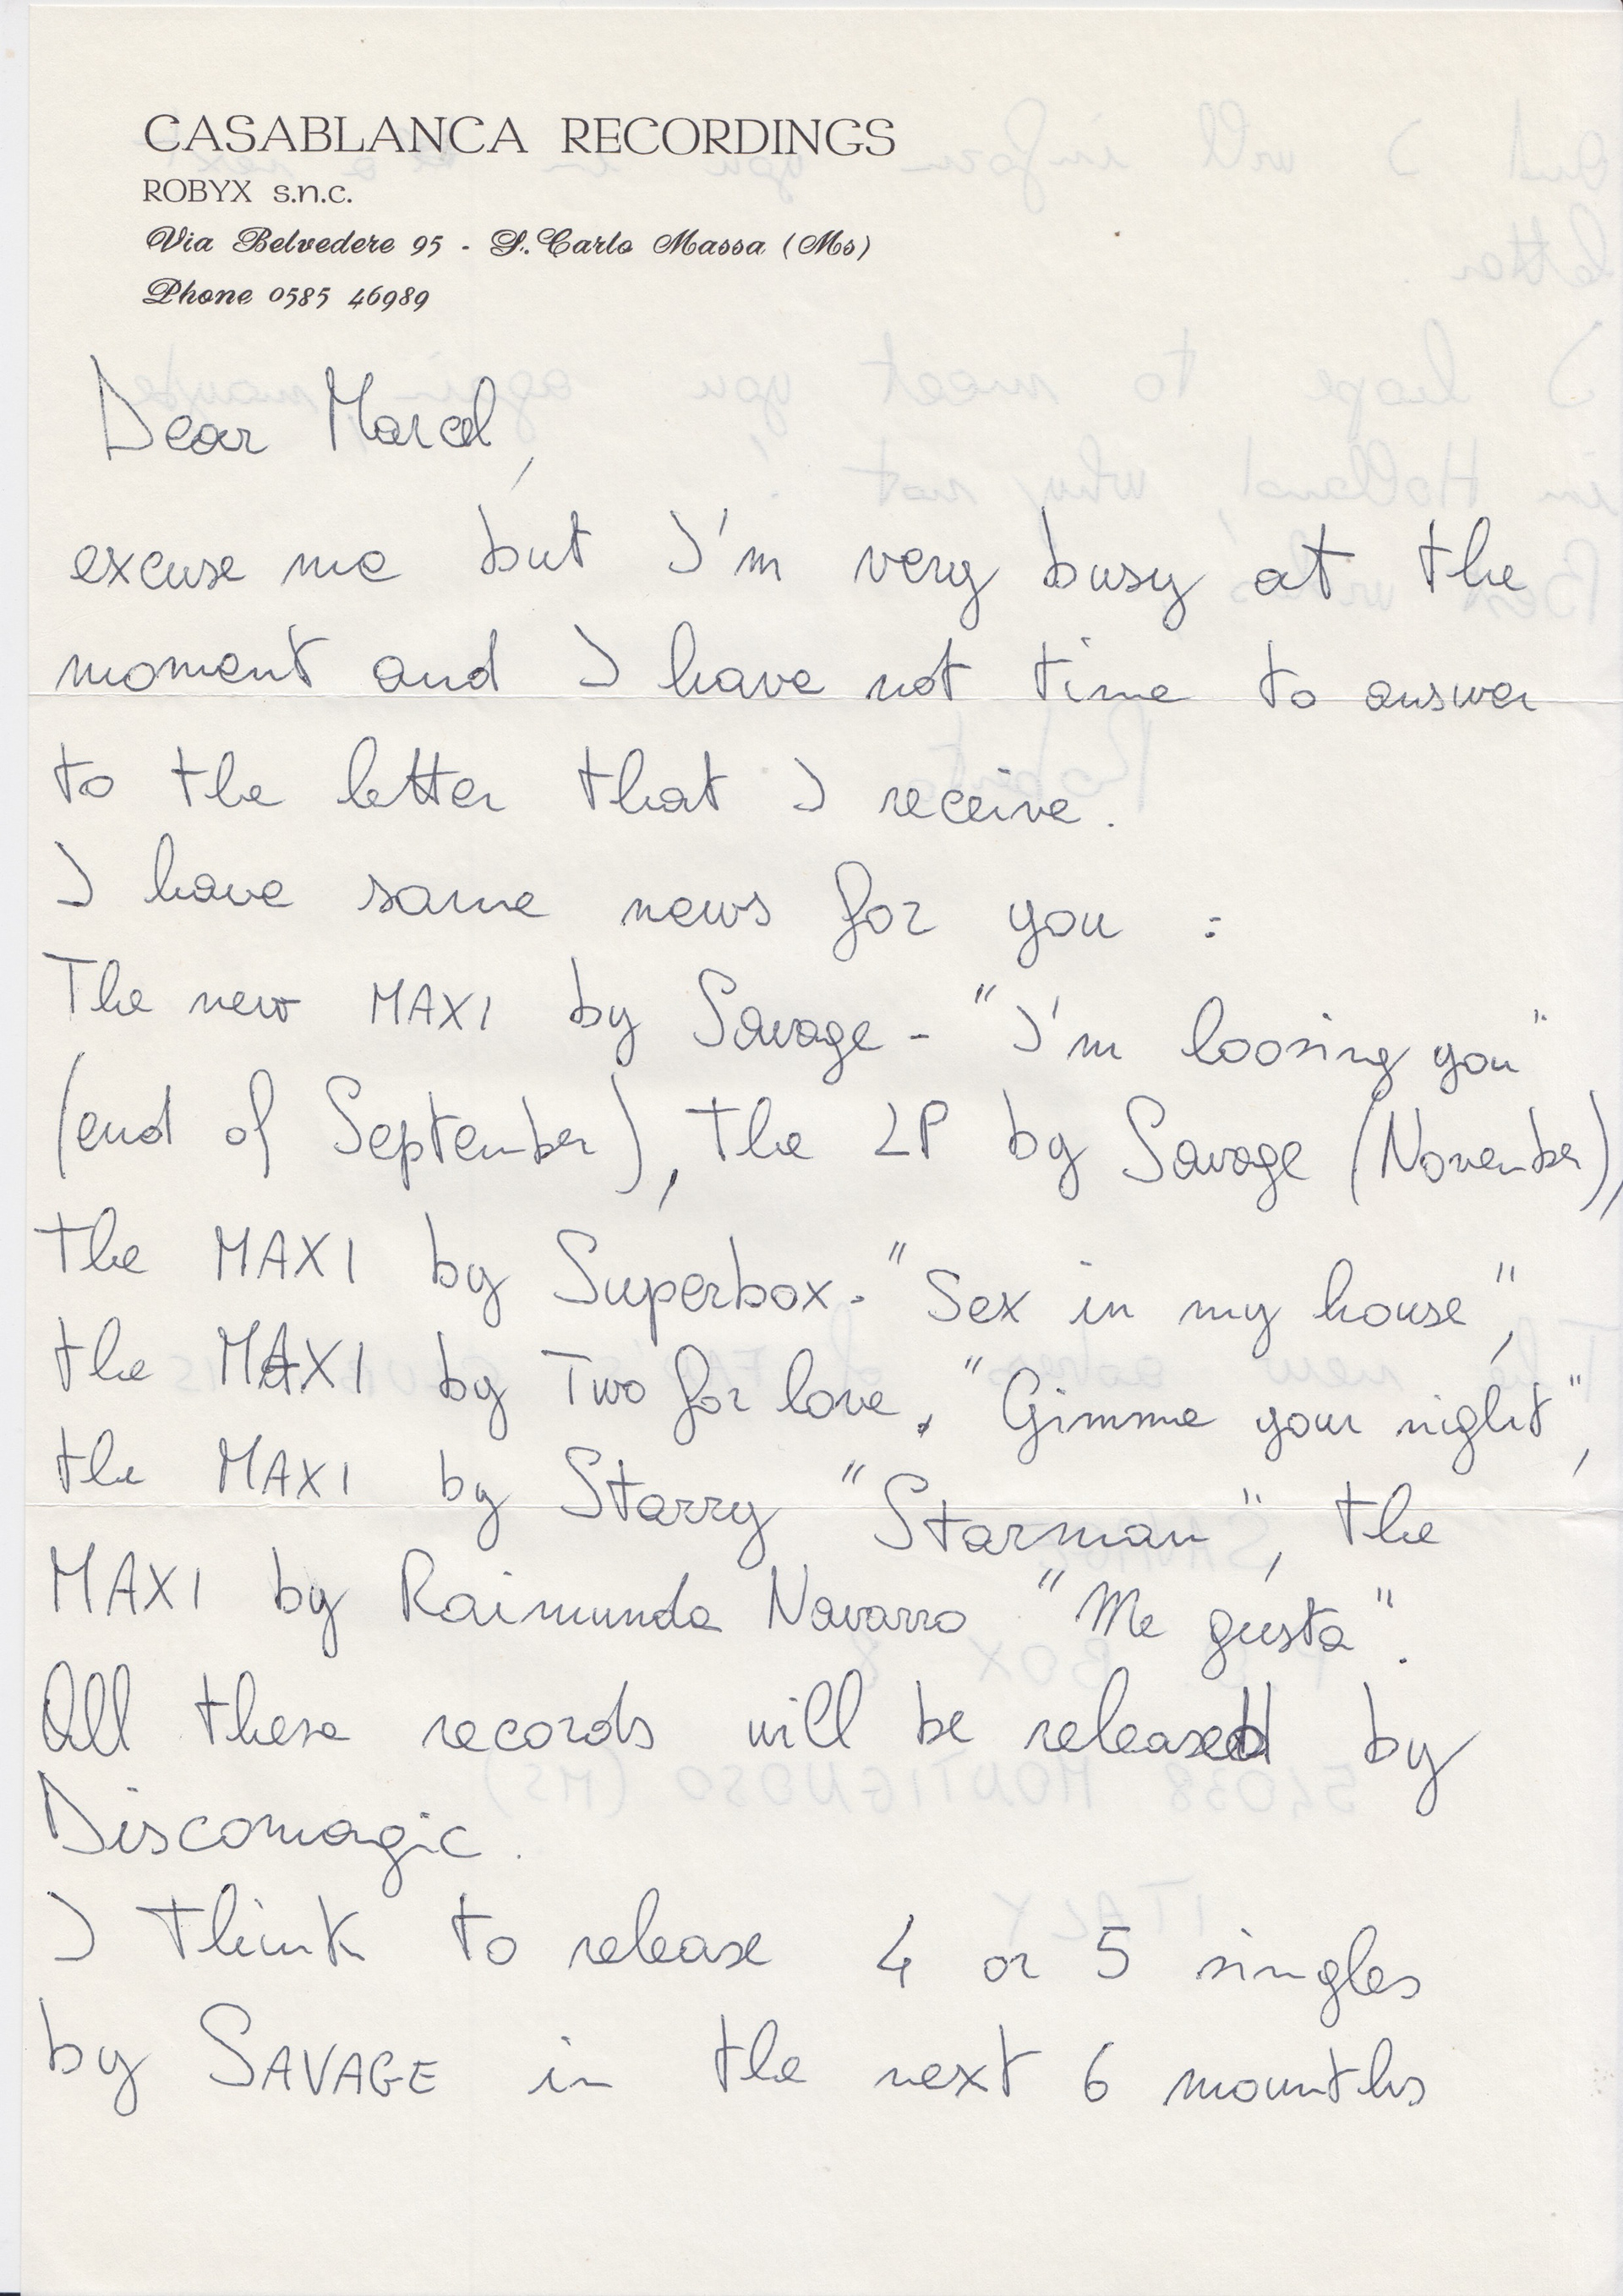 CASABLANCA RECORDINGS
ROBYX s.n.c.
Via Belvedere 95 - S. Carlo Massa (Ms)
Phone 0585 46989
Dear Marcel,
excuse me but I'm very busy at the
moment and I have not time to answer
to the letter that I receive.
I have some news for you :
The new MAXI by Savage - "I'm loosing you"
(end of September), the LP by Savage (November),
the MAXI by Superbox - "Sex in my house",
the MAXI by Two for love. "Gimme your night",
the MAXI by Starry "Starman", the
MAXI by Raimunda Navarro "Me gusta".
All these records will be released by
Discomagic.
I think to release 4 or 5 singles
by SAVAGE in the next 6 mounths